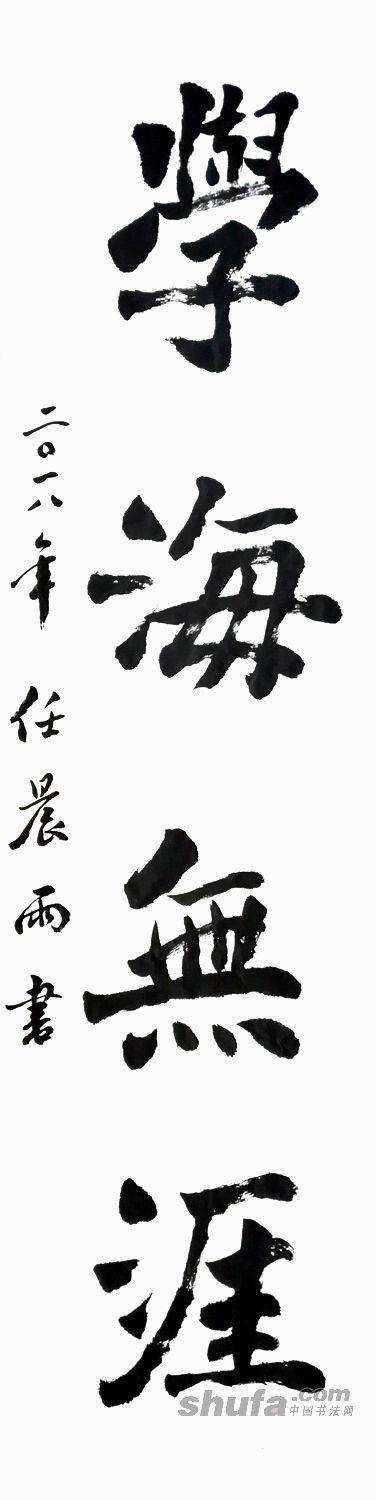 學海無涯
二〇一八年 任晨雨書
shufa.com
中国书法网